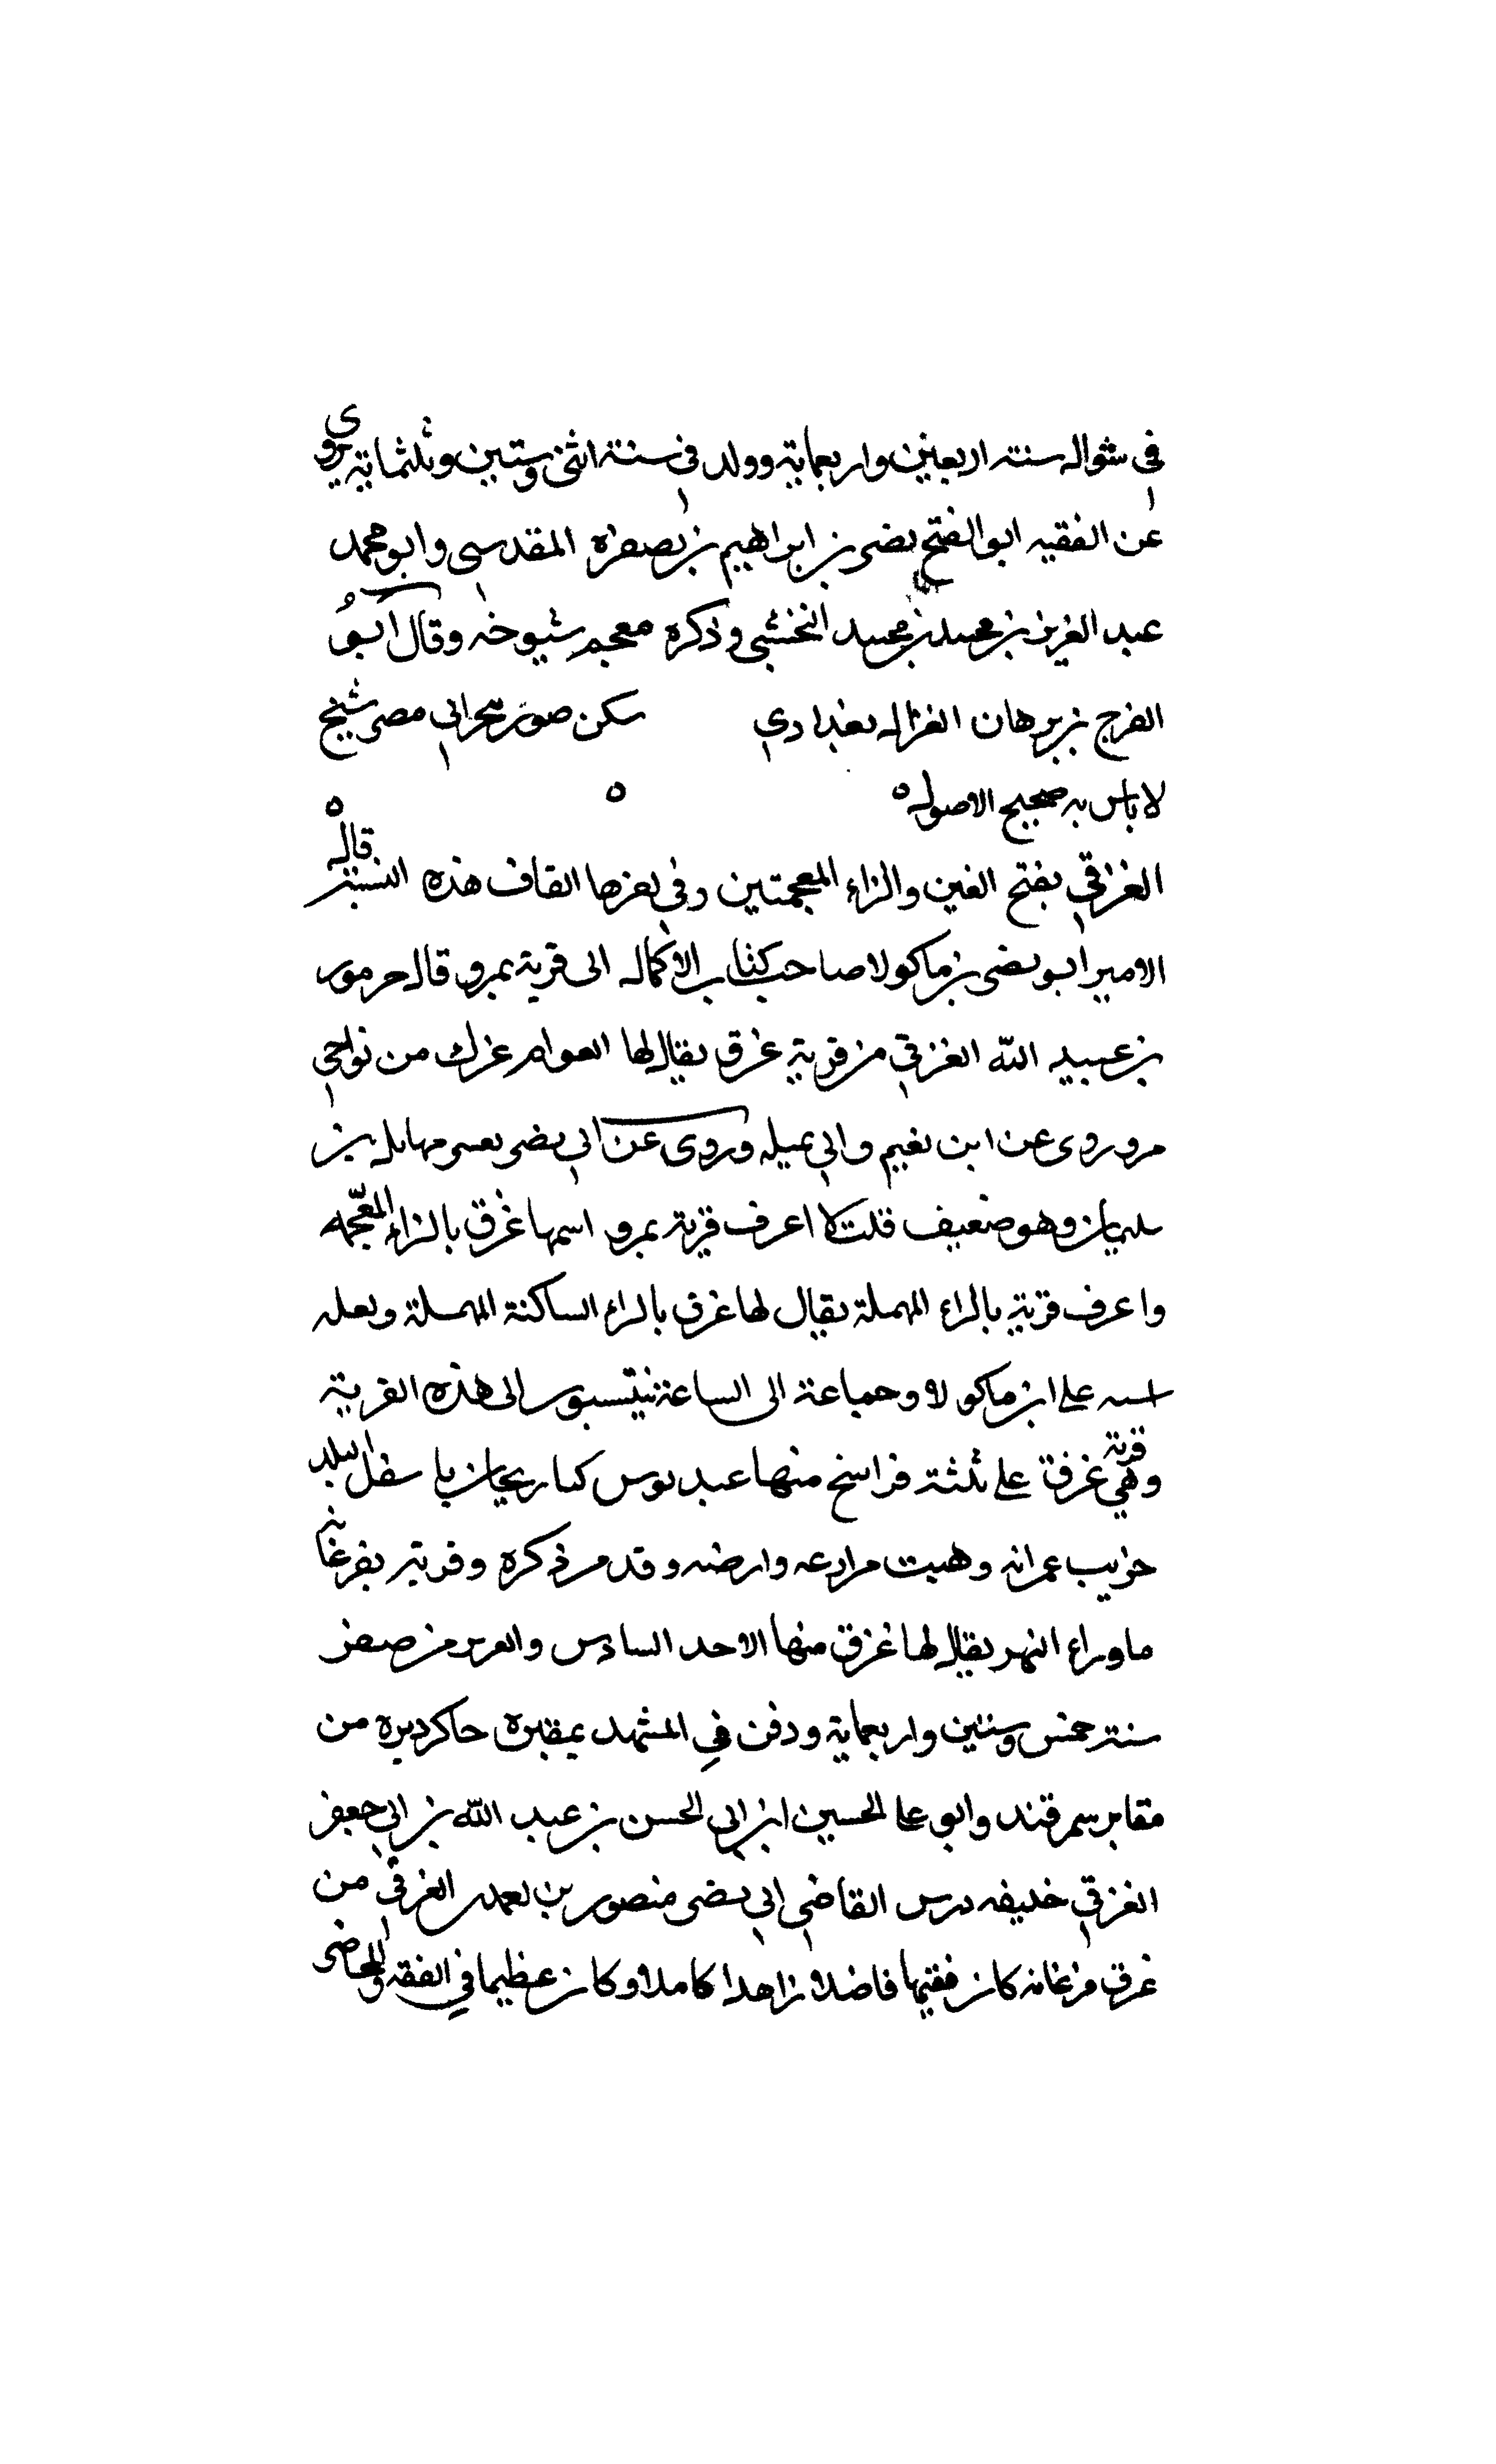 في شوال سنة اربعين واربعماية وولد في سنة اثني وستين وثلثماية يروى
عن الفقيه ابو الفتح نصر بن ابراهيم بن نصر المقدسي وابو محمد
عبد العزيز بن محمد بن محمد النخشبي وذكره معجم شيوخه وقال ابو
الفرج بن برهان الغزال بغدادي سكن صور سحرابي مصر شيخ
لا باس به صحيح الاصول
الغزقي بفتح الغين والزاء المعجمتين وفي اخرها القاف هذه النسبة قال
الامير ابو نصر بن ماكولا صاحب كتاب الاكمال الى قرية بمرو قال جرموز
بن عبيد الله الغزقي من قرية غزق يقال لها العوام غزك من نواحي
مرو روى عن ابن نعيم وابي تميله وروى عن ابي نصر بن
سليمان وهو ضعيف قلت لا اعرف قرية بمرو اسمها غزق بالزاء المعجمه
واعرف قرية بالراء المهملة يقال لها غرق بالراء الساكنة المهملة ولعله
اشتبه على ابن ماكولا وجماعة الى الساعة ينتسبون الى هذه القرية
وهي قرية غرق على ثلثة فراسخ منها باسفل البلد
خريب عمرانه وارضه وقد مر ذكره وقرية بفرغانه
ما وراء النهر يقال لها غزق منها الاحد السادس والعشرين من صفر
سنة خمس وستين واربعماية ودفن في المشهد بمقبرة جاكرديزه من
مقابر سمرقند وابو على الحسين ابن ابي الحسن بن عبد الله بن ابي جعفر
الغزقي خليفه درس القاضي ابي نصر منصور بن احمد الغزقي من
غزق فرغانه كان فقيها فاضلا زاهدا كاملا وكان عظيما في الفقه والمحاضر